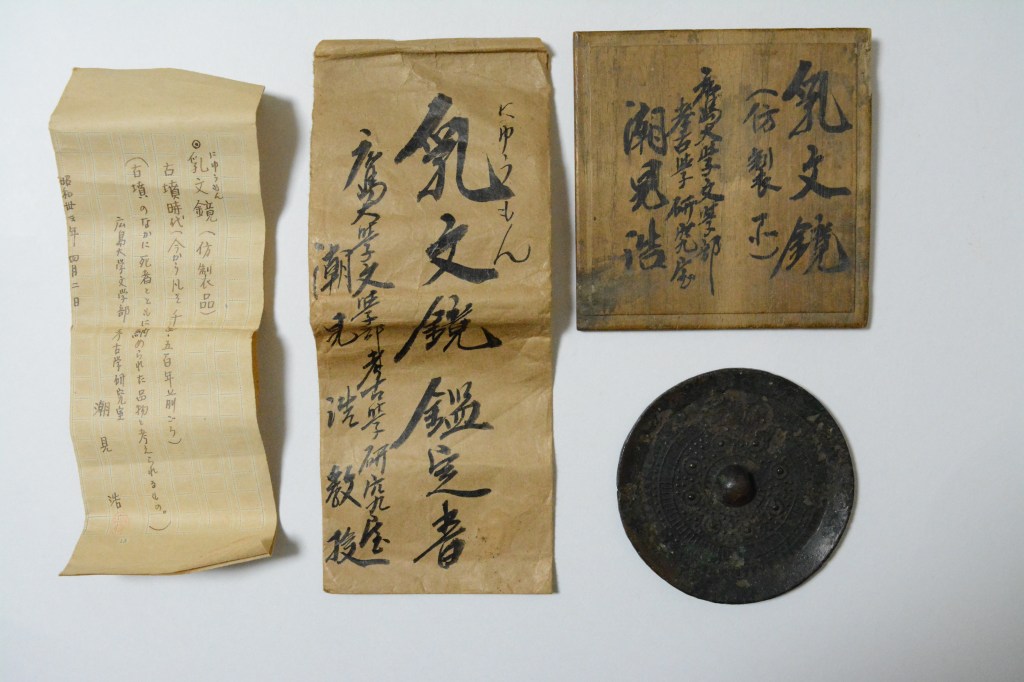 にゅうもん
◎乳文鏡(仿製品)
古墳時代(今から凡そ千五百年以前ごろ)
(古墳のなかに死者とともに納められた品物と考えられるもの。)
広島大学文学部 考古学研究室
潮見 浩
昭和 年 四月二日
にゅうもん
乳文鏡鑑定書
広島大学文学部考古学研究室
潮見浩教授
乳文鏡
(仿製品)
広島大学文学部
考古学研究室
潮見浩